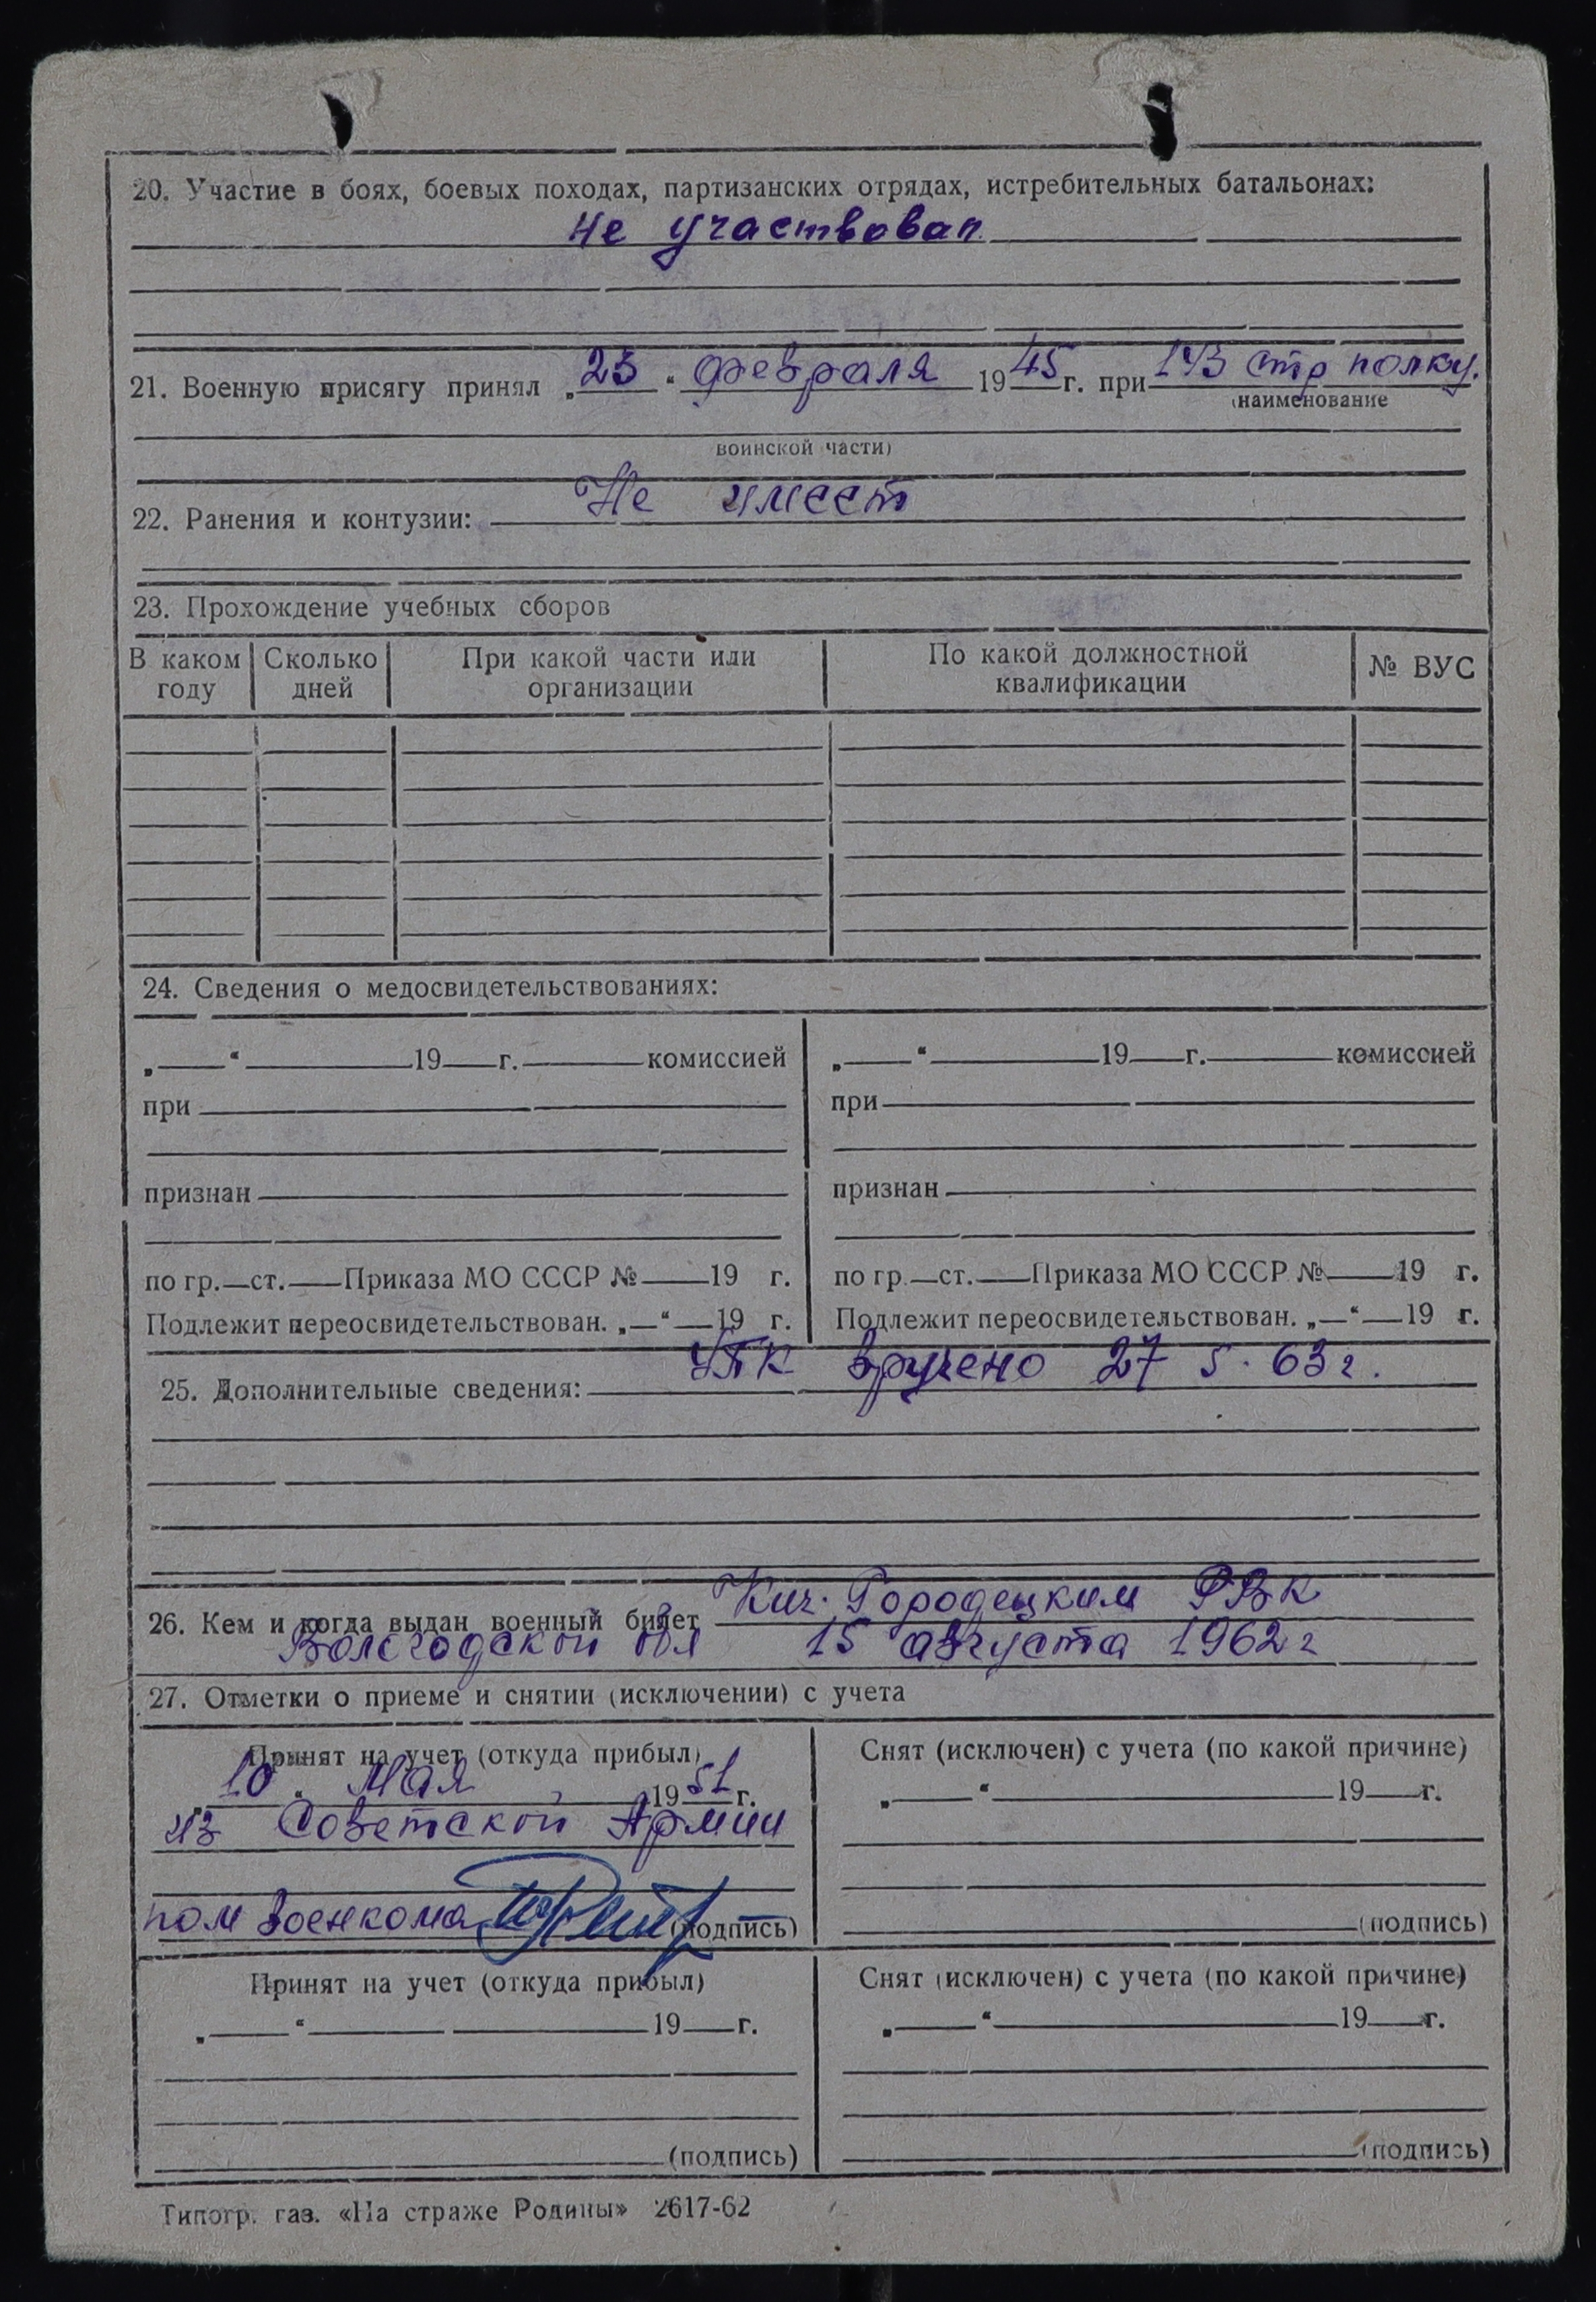 20. Участие в боях, боевых походах, партизанских отрядах, истребительных батальонах:
Не участвовал
21. Военную присягу принял „23“ февраля 1945 г. при 143 стр полку.
(наименование
воинской части)
22. Ранения и контузии: Не имеет
23. Прохождение учебных сборов
В каком году | Сколько дней | При какой части или организации | По какой должностной квалификации | № ВУС
24. Сведения о медосвидетельствованиях:
„ “ 19 г. комиссией
при
признан
по гр. ст. Приказа МО СССР № 19 г.
Подлежит переосвидетельствован. „ “ 19 г.
„ “ 19 г. комиссией
при
признан
по гр. ст. Приказа МО СССР № 19 г.
Подлежит переосвидетельствован. „ “ 19 г.
25. Дополнительные сведения: УПК вручено 27 5. 63 г.
26. Кем и когда выдан военный билет Кич. Городецким РВК
Вологодской обл 15 августа 1962 г
27. Отметки о приеме и снятии (исключении) с учета
Принят на учет (откуда прибыл)
„10“ Мая 1951 г.
из Советской Армии
пом военкома (подпись)
Снят (исключен) с учета (по какой причине)
„ “ 19 г.
(подпись)
Принят на учет (откуда прибыл)
„ “ 19 г.
(подпись)
Снят (исключен) с учета (по какой причине)
„ “ 19 г.
(подпись)
Типогр. газ. «На страже Родины» 2617-62